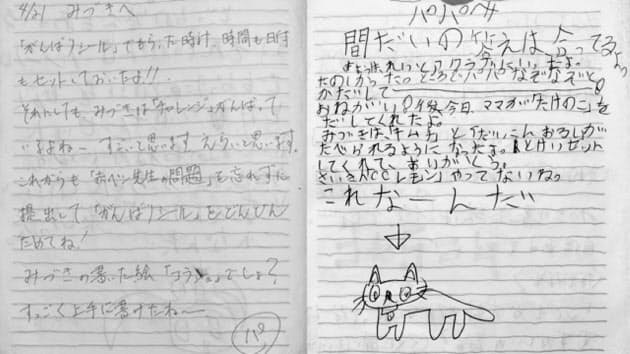 4/21 みづきへ
「がんばりシール」でもらった時計、時間も日付
もセットしておいたよ!!
それにしても、みづきは「チャレンジ」がんばって
いるよねー すごいと思います。えらいと思います。
これからも「赤ペン先生の問題」を忘れずに
提出して、「がんばりシール」をどんどん
ためてね!
みづきの書いた絵「コラショ」でしょ?
すっごく上手に書けたねー
パパ
パパへ
問だいの答えは合ってるよっ
きょうは、れいっとアクアがんに
たのしかった。ところでパパなぞなぞと
かだして
おねがい 今日、ママが「たけのこ」を
だしてくれたよ。
みづきは、「キムチ」と「だいこんおろし」が
たべられるようになったよ。とけいセット
してくれて、ありがとう。
さいきん「CCレモン」やってないね。
これなーんだ